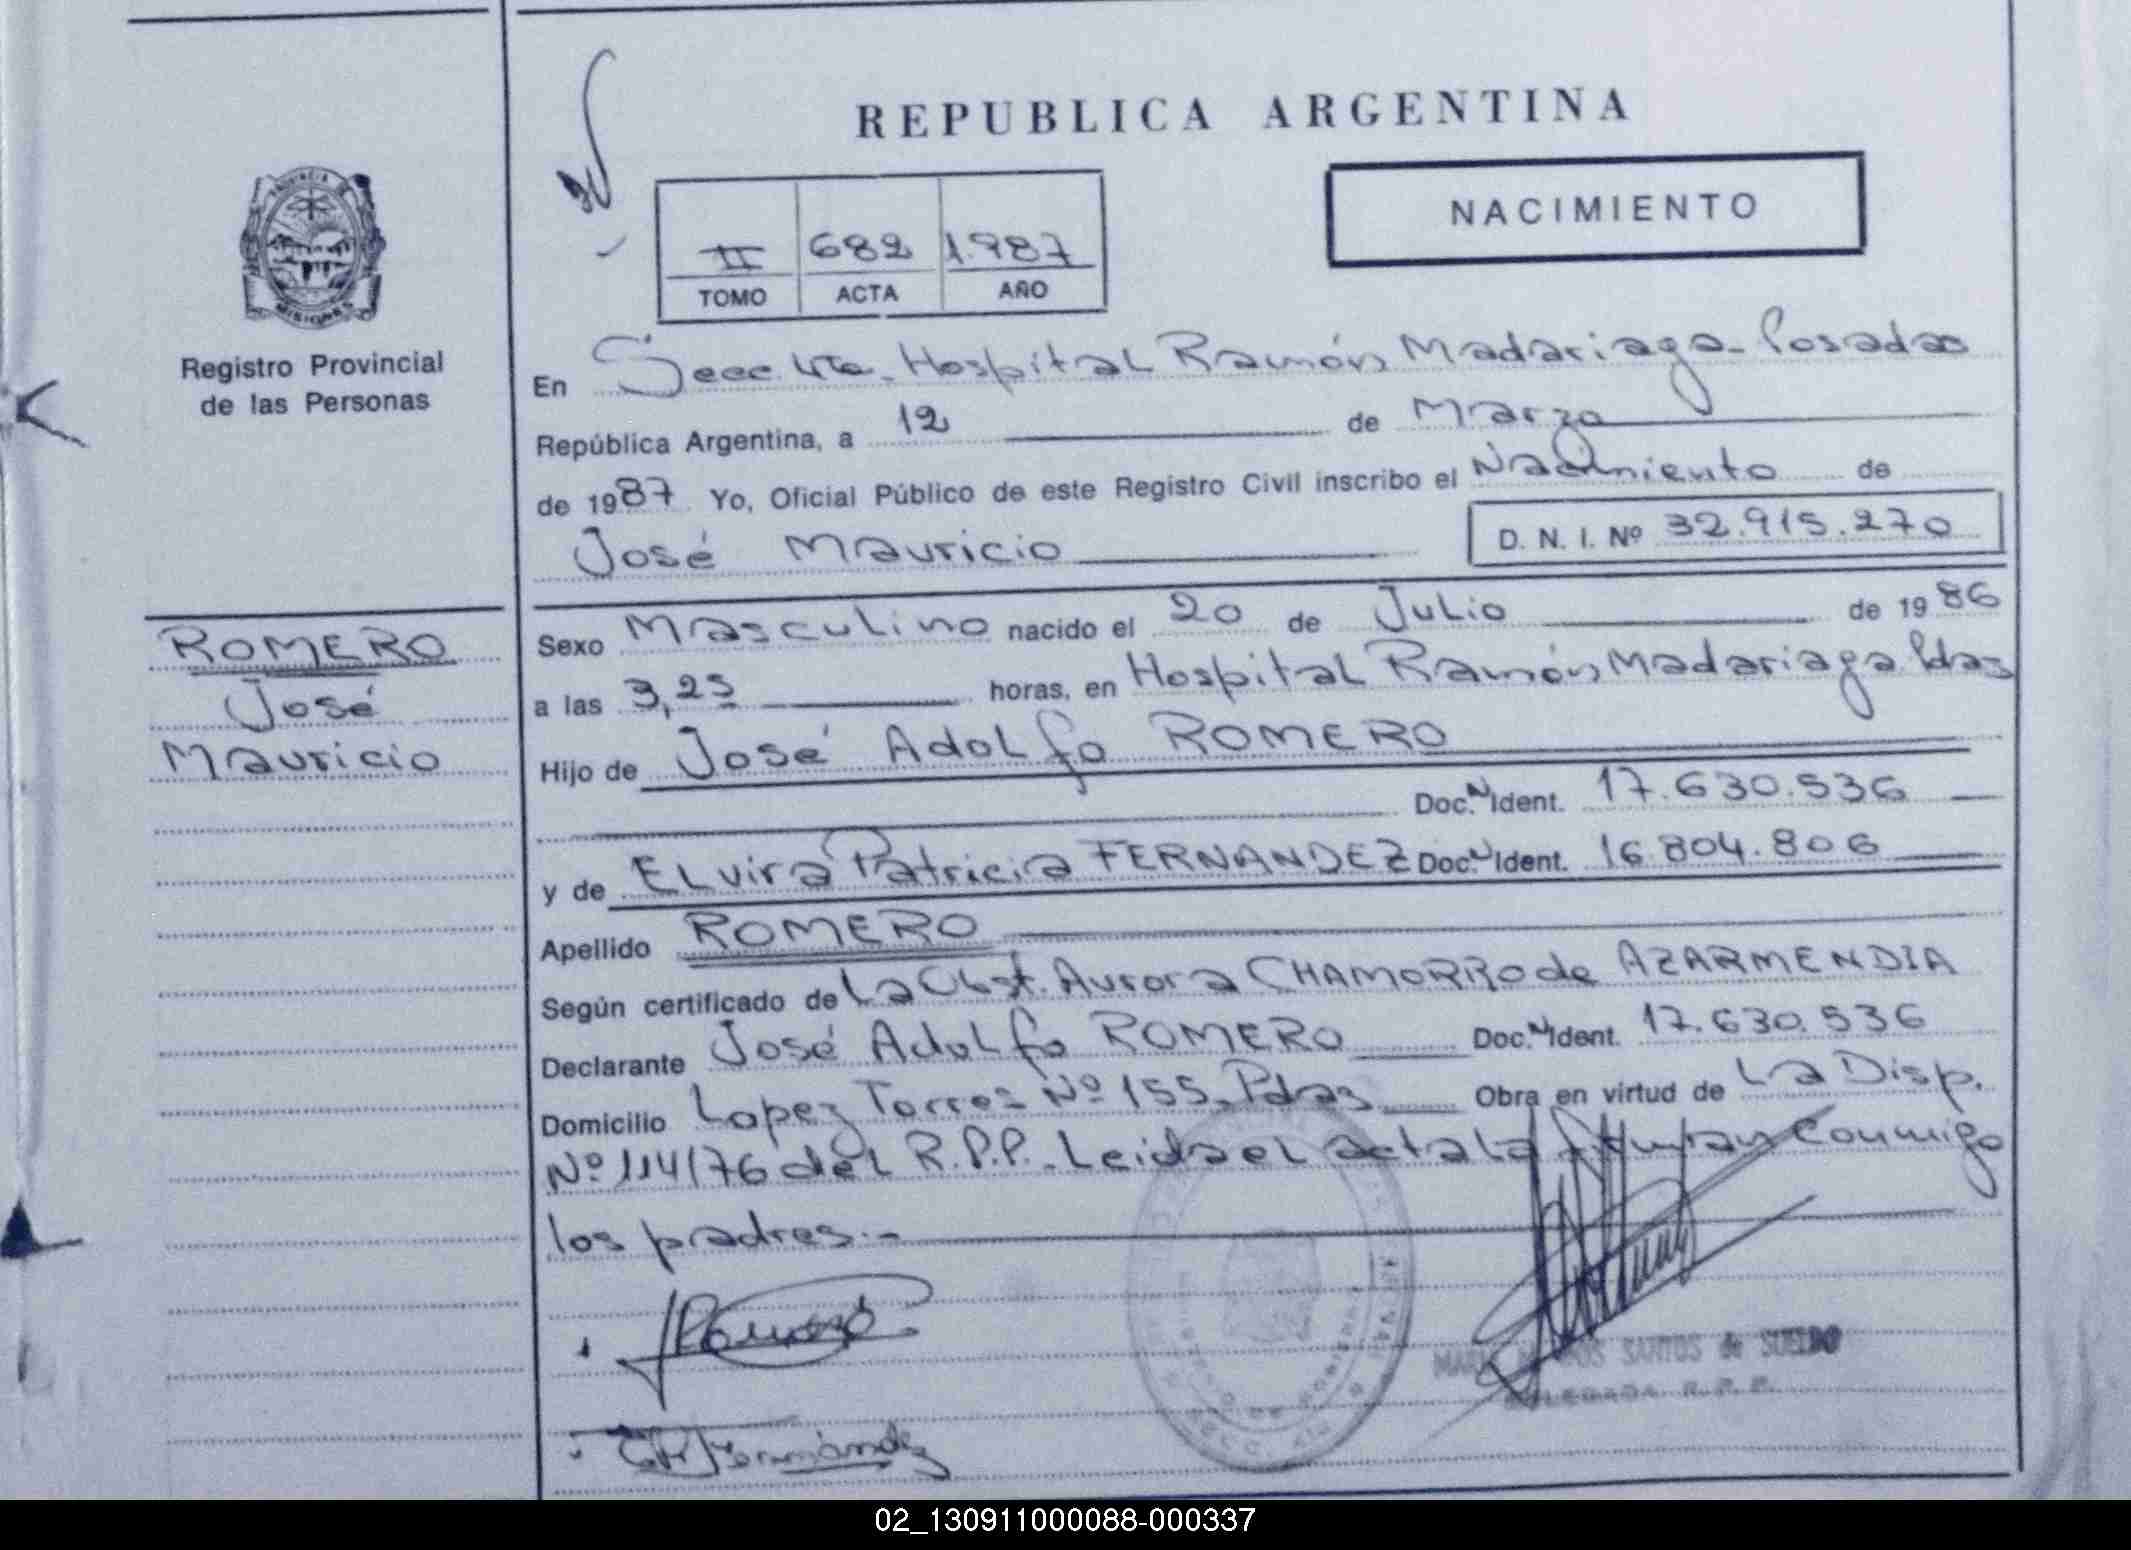 REPUBLICA ARGENTINA
NACIMIENTO
II 682 1.987
TOMO ACTA AÑO
PROVINCIA DE
MISIONES
Registro Provincial
de las Personas
En Secc. 4ta. Hospital Ramón Madariaga - Posadas
República Argentina, a 12 de Marzo
de 1987 Yo, Oficial Público de este Registro Civil inscribo el Nacimiento de
José Mauricio D. N. I. Nº 32.915.270
ROMERO
José
Mauricio
Sexo Masculino nacido el 20 de Julio de 1986
a las 3,25 horas, en Hospital Ramón Madariaga. Pdas
Hijo de José Adolfo ROMERO
Doc. N Ident. 17.630.536
y de ELvira Patricia FERNANDEZ Doc. N Ident. 16.804.806
Apellido ROMERO
Según certificado de La Obst. Aurora CHAMORRO de AZARMENDIA
Declarante José Adolfo ROMERO Doc. N Ident. 17.630.536
Domicilio Lopez Torres Nº 155 - Pdas Obra en virtud de La Disp.
Nº 114/76 del R.P.P. Leida el acta la firman conmigo
los padres.-
Romero
Fernández
SANTOS de SUELDO
DELEGADA R. P. P.
02_130911000088-000337